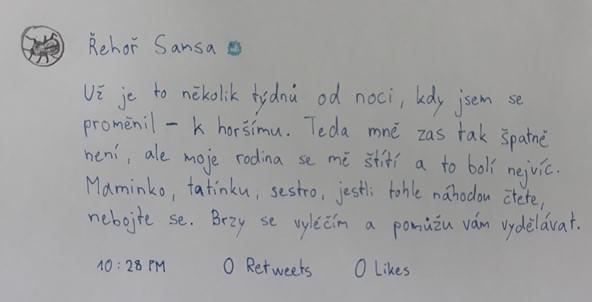 Řehoř Samsa
Už je to několik týdnů od noci, kdy jsem se
proměnil – k horšímu. Teda mně zas tak špatně
není, ale moje rodina se mě štítí a to bolí nejvíc.
Maminko, tatínku, sestro, jestli tohle náhodou čtete,
nebojte se. Brzy se vyléčím a pomůžu vám vydělávat.
10:28 PM 0 Retweets 0 Likes